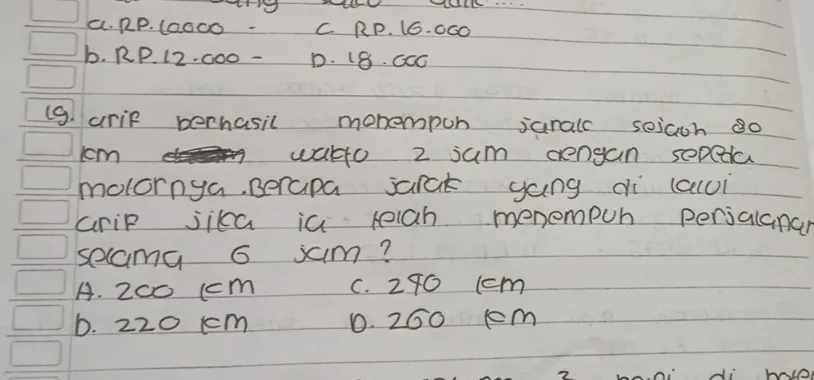 a. RP. 10000 - C. RP. 16.000
b. RP. 12.000 - D. 18.000
19. arif berhasil menempuh jarak sejauh 80
km waktu 2 jam dengan sepeda
motornya. Berapa jarak yang di lalui
arif jika ia telah menempuh perjalanan
selama 6 jam?
A. 200 km C. 240 km
b. 220 km D. 260 km